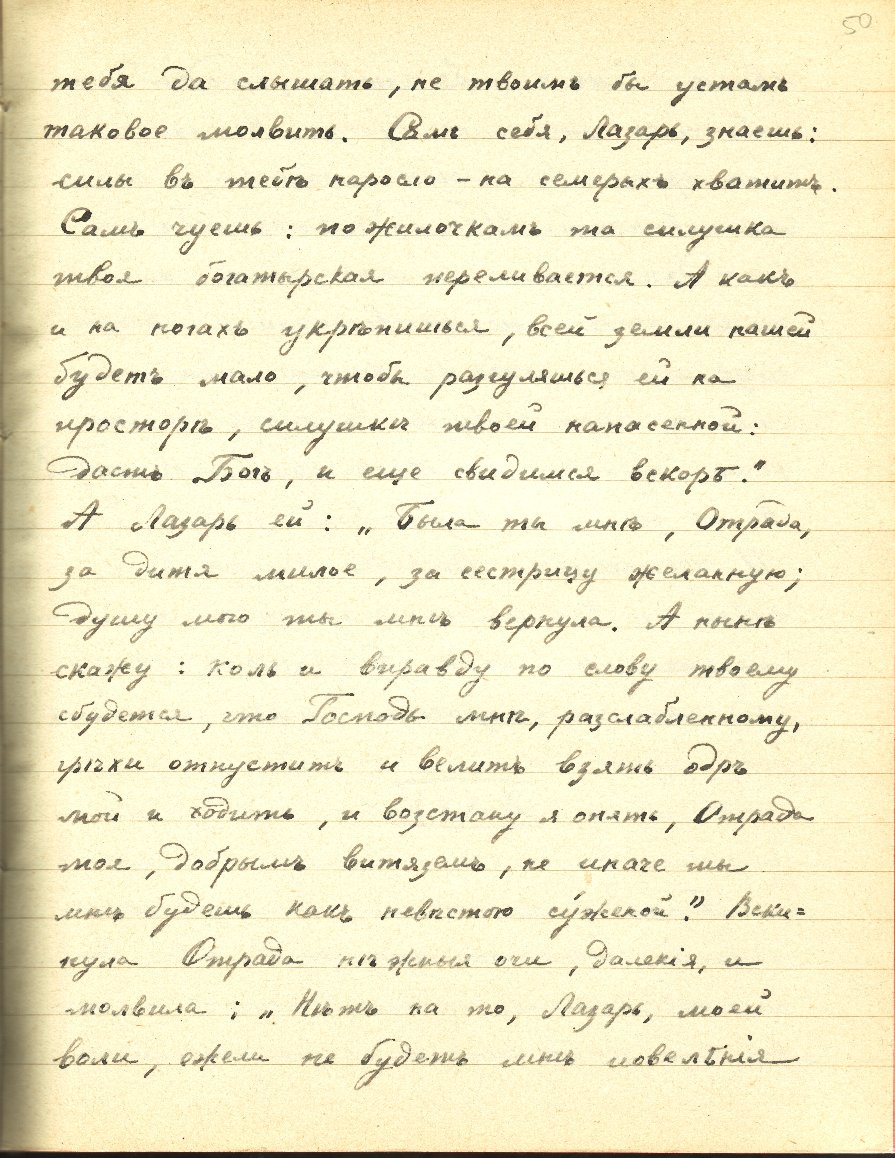 50
тебя да слышать, не твоимъ бы устамъ
таковое молвить. Самъ себя, Лазарь, знаешь:
силы въ тебѣ наросло – на семерыхъ хватитъ.
Самъ чуешь: по жилочкамъ та силушка
твоя богатырская переливается. А какъ
и на ногахъ укрѣпишься, всей земли нашей
будетъ мало, чтобы разгуляться ей на
просторѣ, силушкѣ твоей напасенной:
дастъ Богъ, и еще свидимся вскорѣ."
А Лазарь ей: „Была ты мнѣ, Отрада,
за дитя милое, за сестрицу желанную;
душу мою ты мнѣ вернула. А нынѣ
скажу: коль и вправду по слову твоему
сбудется, что Господь мнѣ, разслабленному,
грѣхи отпуститъ и велитъ взять одръ
мой и ходить, и возстану я опять, Отрада
моя, добрымъ витяземъ, не иначе ты
мнѣ будешь какъ невѣстою су́женой." Вски=
нула Отрада нѣжныя очи, далекія, и
молвила: „Нѣтъ на то, Лазарь, моей
воли, ежели не будетъ мнѣ повелѣнія